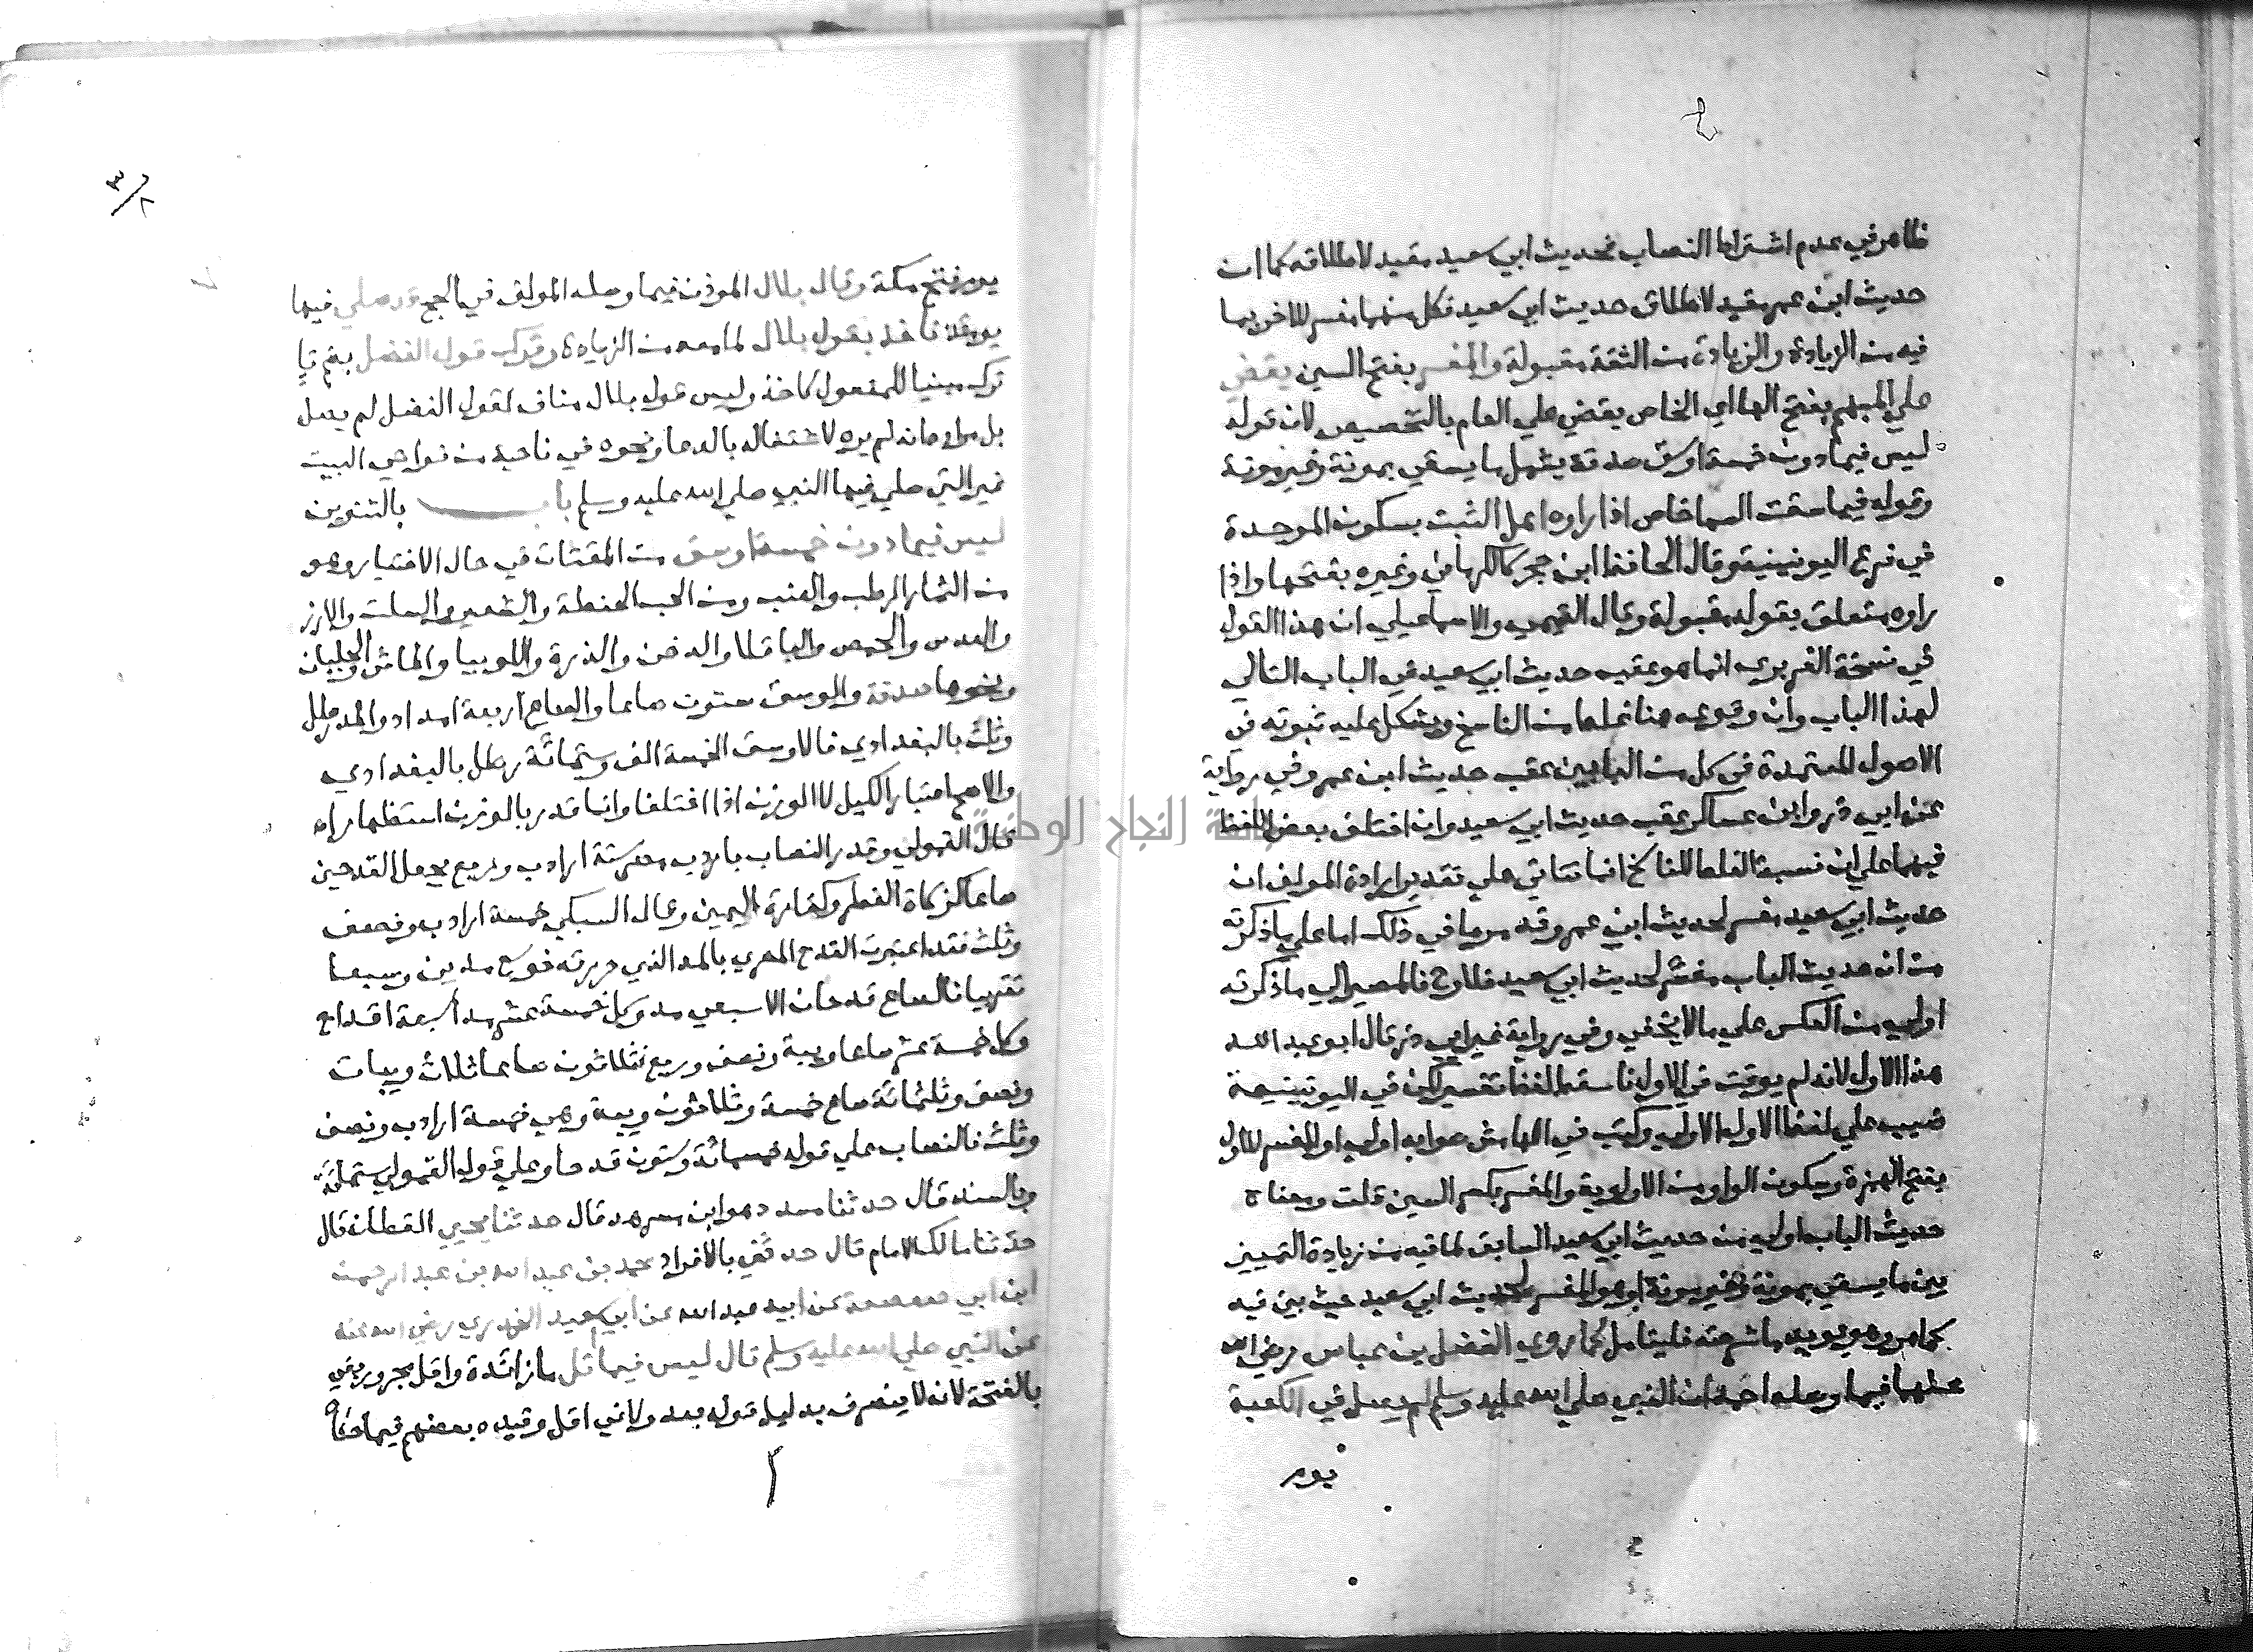 ظاهر في عدم اشتراط النصاب فحديث ابي سعيد مقيد لاطلاقه كما ان
حديث ابن عمر مقيد لاطلاق حديث ابي سعيد فكل منهما مفسر للاخر بما
فيه من الزيادة والزيادة من الثقة مقبولة والمفسر بفتح السين يقضي
علي المبهم بفتح الها اي الخاص يقضي علي العام بالتخصيص لان قوله
ليس فيما دون خمسة اوسق صدقة يشمل ما يسقي بمونة وغير مونة
وقوله فيما سقت السما خاص اذا رواه اهل الثبت بسكون الموحدة
في فرع اليونينية وقال الحافظ ابن حجر كالكرماني وغيره بفتحها واذا
رواه متعلق بقوله مقبولة وقال التيمي والاسماعيلي ان هذا القول
في نسخة الفربري انما هو عقب حديث ابي سعيد في الباب التالي
لهذا الباب وان وقوعه هنا غلط من الناسخ ويشكل عليه ثبوته في
الاصول المعتمدة في كل من البابين عقب حديث ابن عمر وفي رواية
عن ابي ذر وابن عساكر عقب حديث ابي سعيد وان اختلف بعض اللفظ
فيهما علي ان نسبة الغلط للناسخ انما تتاتي علي تقدير ارادة المولف ان
حديث ابي سعيد مفسر لحديث ابن عمر وقد مر ما في ذلك اما علي ما ذكرته
من ان حديث الباب مفسر لحديث ابي سعيد فلا وح فالمصير الي ما ذكرته
اولي من العكس علي ما لا يخفي وفي رواية غير ابي ذر قال ابو عبد الله
هذا الاول لانه لم يوقت في الاول فاسقط لفظ تفسير لكن في اليونينية
ضبب علي لفظ الاول الاولي وكتب في الهامش صوابه اولي او المفسر للاول
بفتح الهمزة وسكون الواو من الاولوية والمفسر بكسر السين قلت ومعناه
حديث الباب اولي من حديث ابي سعيد السابق لما فيه من زيادة التمييز
بين ما يسقي بمونة وغير مونة او هو المفسر لحديث ابي سعيد حيث بين فيه
كما مر وهو يويد ما شرحته فليتامل كما روي الفضل بن عباس رضي الله
عنهما فيما وصله احمد ان النبي صلي الله عليه وسلم لم يصل في الكعبة
يوم
يوم فتح مكة وقال بلال الموذن فيما وصله المولف في الحج قد صلي فيها
يومئذ فاخذ بقول بلال لما معه من الزيادة وترك قول الفضل بضم تا
ترك مبنيا للمفعول كاخذ وليس قول بلال مناف لقول الفضل لم يصل
بل مراده انه لم يره لاشتغاله بالدعا ونحوه في ناحية من نواحي البيت
غير التي صلي فيها النبي صلي الله عليه وسلم باب بالتنوين
ليس فيما دون خمسة اوسق من المقتات في حال الاختيار وهو
من الثمار الرطب والعنب ومن الحب الحنطة والشعير والسلت والارز
والعدس والحمص والباقلا والدخن والذرة واللوبيا والماش والجلبان
ونحوها صدقة والوسق ستون صاعا والصاع اربعة امداد والمد رطل
وثلث بالبغدادي فالاوسق الخمسة الف وستمائة رطل بالبغدادي
والاصح اعتبار الكيل لا الوزن اذا اختلفا وانما قدر بالوزن استظهارا
قال القمولي وقدر النصاب باردب مصر ستة ارادب وربع بجعل القدحين
صاعا كزكاة الفطر وكفارة اليمين وقال السبكي خمسة ارادب ونصف
وثلث فقد اعتبرت القدح المصري بالمد الذي حررته فوسع مدين وسبعا
تقريبا فالصاع قدحان الا سبعي مد وكل خمسة عشر مدا سبعة اقداح
وكل خمسة عشر صاعا ويبة ونصف وربع فثلاثون صاعا ثلاث ويبات
ونصف وثلثمائة صاع خمسة وثلاثون ويبة وهي خمسة ارادب ونصف
وثلث فالنصاب علي قوله خمسمائة وستون قدحا وعلي قول القمولي ستمائة
وبالسند قال حدثنا مسدد هو ابن مسرهد قال حدثنا يحيي القطان قال
حدثنا مالك الامام قال حدثني بالافراد محمد بن عبد الله بن عبد الرحمن
ابن ابي صعصعة عن ابيه عبد الله عن ابي سعيد الخدري رضي الله عنه
عن النبي صلي الله عليه وسلم قال ليس فيما اقل ما زائدة واقل مجرور بفي
بالفتحة لانه لا ينصرف بدليل قوله بعد ولا في اقل وقيده بعضهم فيما
جامعة النجاح الوطنية